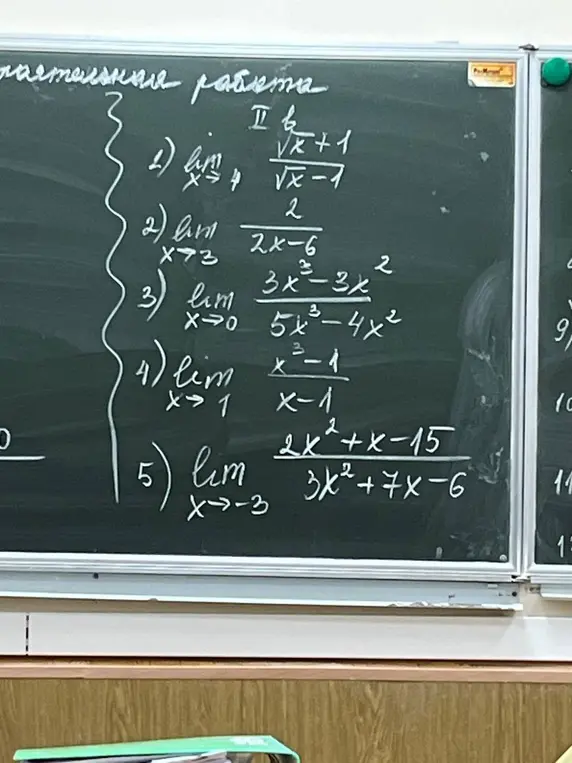 рательная работа
II в
1) lim x→4 (√x+1)/(√x-1)
2) lim x→3 2/(2x-6)
3) lim x→0 (3x³-3x²)/(5x³-4x²)
4) lim x→1 (x³-1)/(x-1)
5) lim x→-3 (2x²+x-15)/(3x²+7x-6)
0
9)
10
11
1